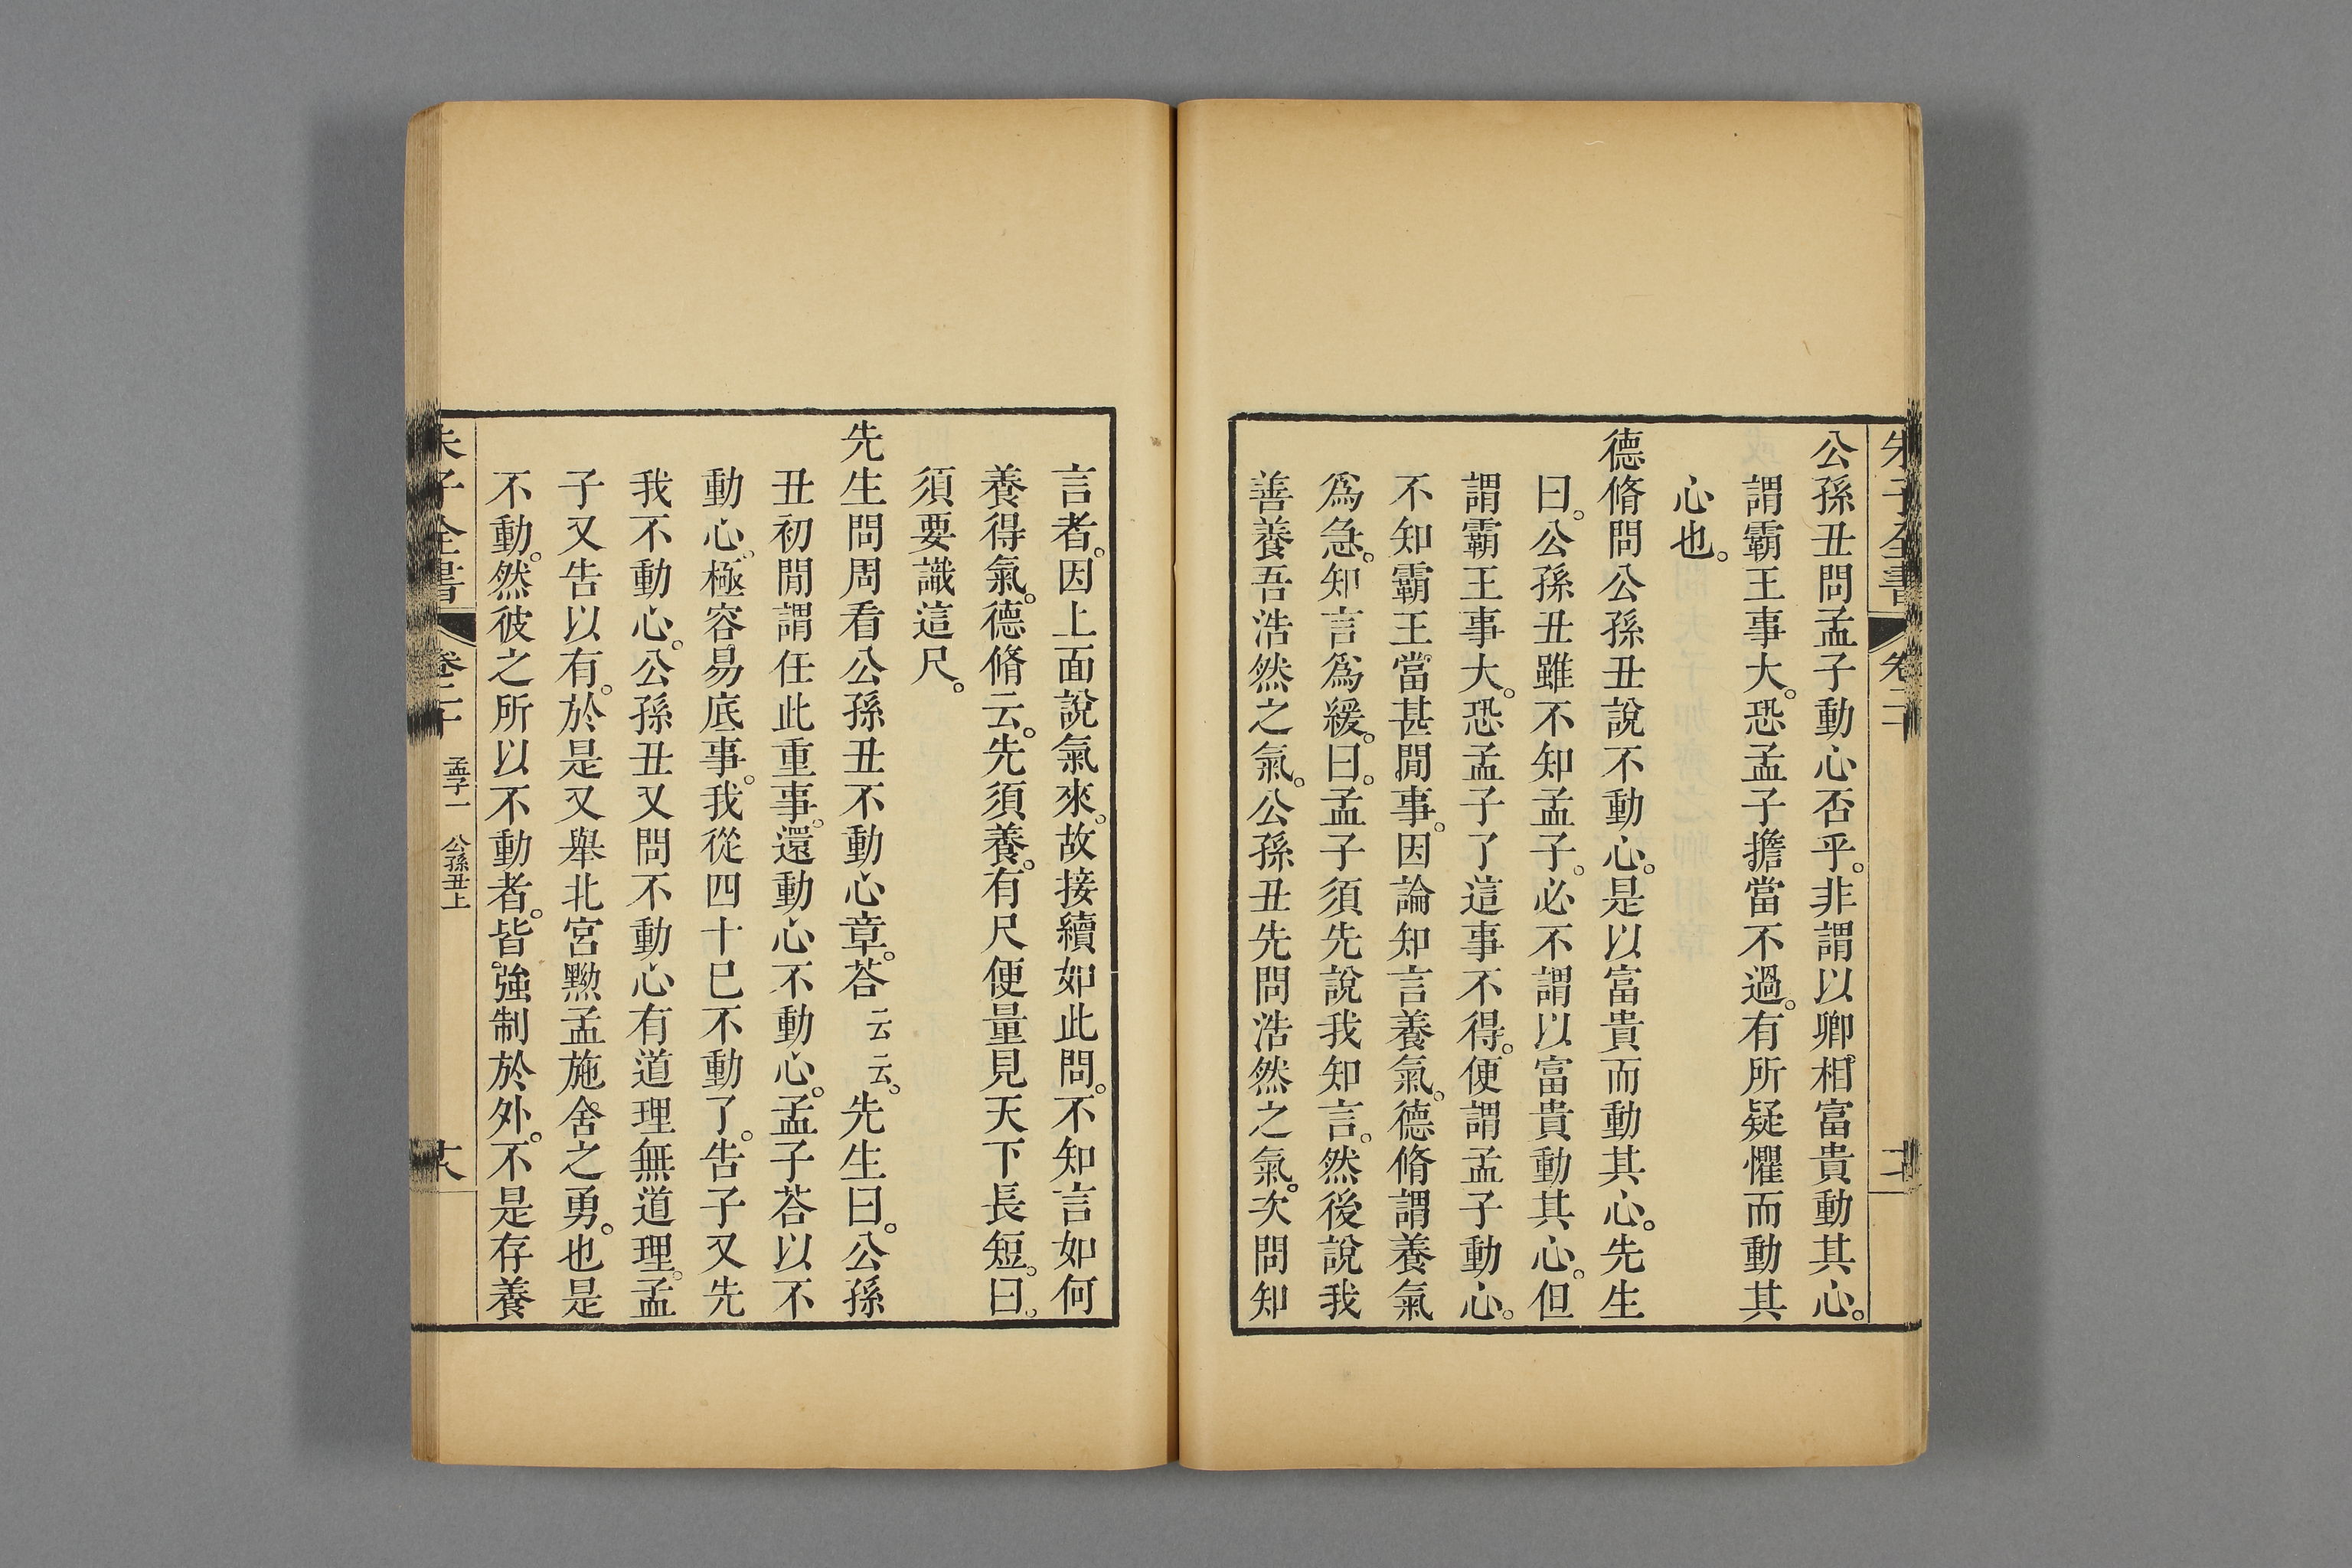 公孫丑問孟子動心否乎。非謂以卿相富貴動其心。
謂霸王事大。恐孟子擔當不過。有所疑懼而動其
心也。
德脩問公孫丑說不動心。是以富貴而動其心。先生
曰。公孫丑雖不知孟子。必不謂以富貴動其心。但
謂霸王事大。恐孟子了這事不得。便謂孟子動心。
不知霸王當甚閒事。因論知言養氣。德脩謂養氣
爲急。知言爲緩。曰。孟子須先說我知言。然後說我
善養吾浩然之氣。公孫丑先問浩然之氣。次問知
言者。因上面說氣來。故接續如此問。不知言如何
養得氣。德脩云。先須養。有尺便量見天下長短。曰。
須要識這尺。
先生問周看公孫丑不動心章。荅云云。先生曰。公孫
丑初閒謂任此重事。還動心不動心。孟子荅以不
動心。極容易底事。我從四十已不動了。告子又先
我不動心。公孫丑又問不動心有道理無道理。孟
子又告以有。於是又舉北宮黝孟施舍之勇。也是
不動。然彼之所以不動者。皆強制於外。不是存養
朱子全書
卷二十
孟子一 公孫丑上